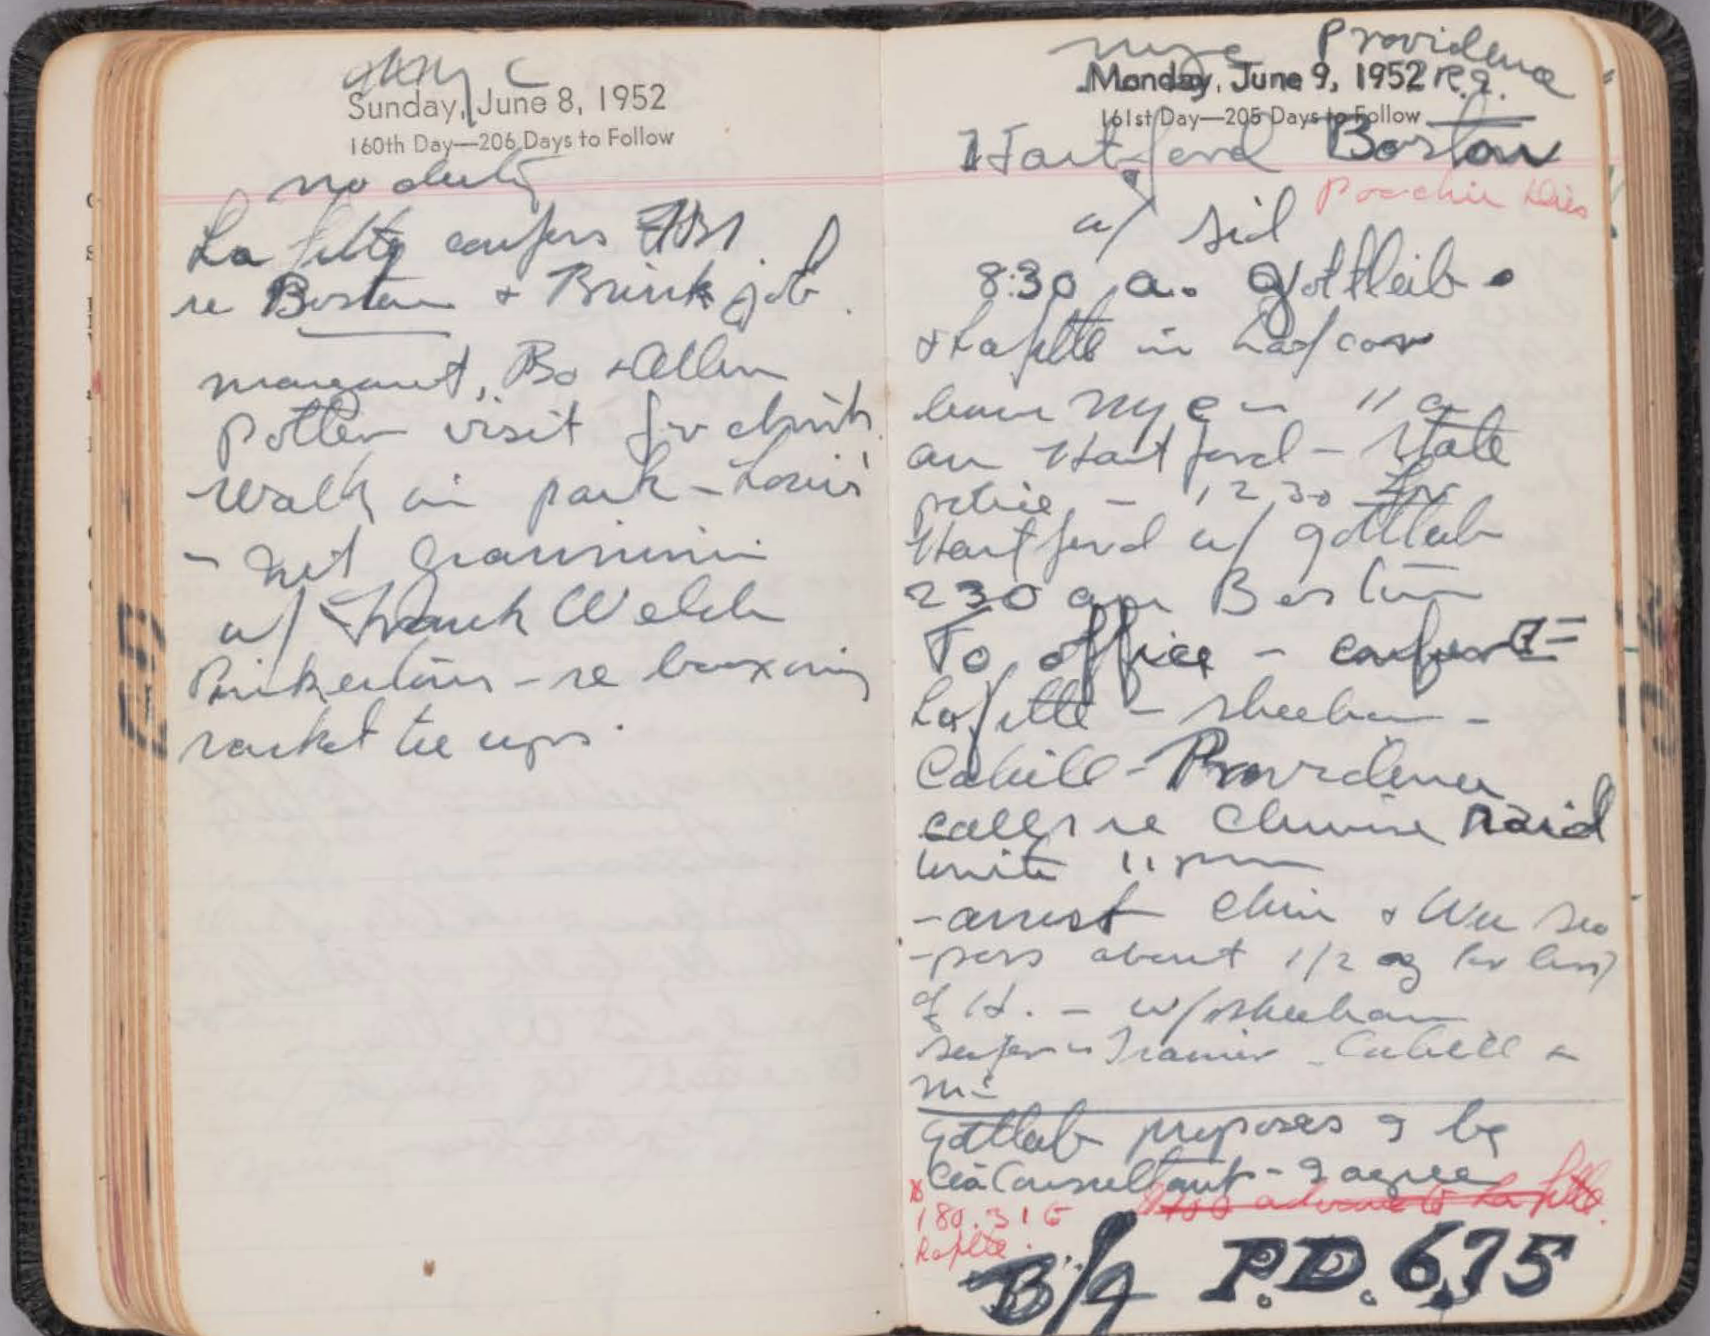 NYC
Sunday, June 8, 1952
160th Day—206 Days to Follow
no duty
La fitte confers FBI
re Boston + Brink job.
margaret, Bo + Allen
Potter visit for drinks.
Walk in park - Louis'
- met
w/ Frank Welch
Pinkertons - re boxing
racket tie ups.
NYC Providence
Monday, June 9, 1952 R.I.
161st Day—205 Days to Follow
Hartford Boston
w/ Sid
8:30 a. Gottleib.
+ Lafitte in car
leave NYC - 11 a
arr Hartford - State
police - 12 30 Lv
Hartford w/ gottleib
2 30 arr Boston
To office - confer
Lafitte - Sheehan -
Cahill - Providence
calls re Chinese raid
unite 11 pm
- arrest Chin + Wee
- poss about 1/2 oz (or less)
of H. - w/ Sheehan
Trainor - Cahill +
me
Gottleb proposes I be
CIA Consultant - I agree
$100 advance to Lafitte.
180.31
Lafitte.
B/9 P.D. 6.75